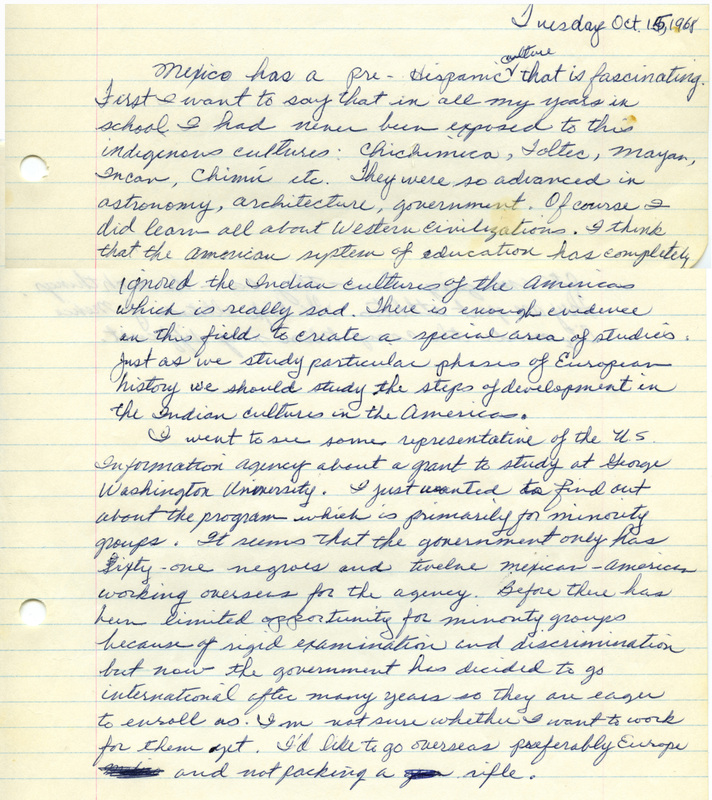 Tuesday Oct. 15, 1968
culture
Mexico has a pre-Hispanic that is fascinating.
First I want to say that in all my years in
school I had never been exposed to this
indigenous cultures: Chichimica, Toltec, Mayan,
Incan, Chimu etc. They were so advanced in
astronomy, architecture, government. Of course I
did learn all about Western Civilizations. I think
that the American system of education has completely
ignored the Indian cultures of the Americas
which is really sad. There is enough evidence
in this field to create a special area of studies.
Just as we study particular phases of European
history we should study the steps of development in
the Indian cultures in the Americas.
I went to see some representative of the U.S.
Information agency about a grant to study at George
Washington University. I just wanted to find out
about the program which is primarily for minority
groups. It seems that the government only has
sixty-one negroes and twelve mexican-american
working overseas for the agency. Before there has
been limited opportunity for minority groups
because of rigid examination and discrimination
but now the government has decided to go
international after many years so they are eager
to enroll us. I'm not sure whether I want to work
for them yet. I'd like to go overseas preferably Europe
and not packing a rifle.